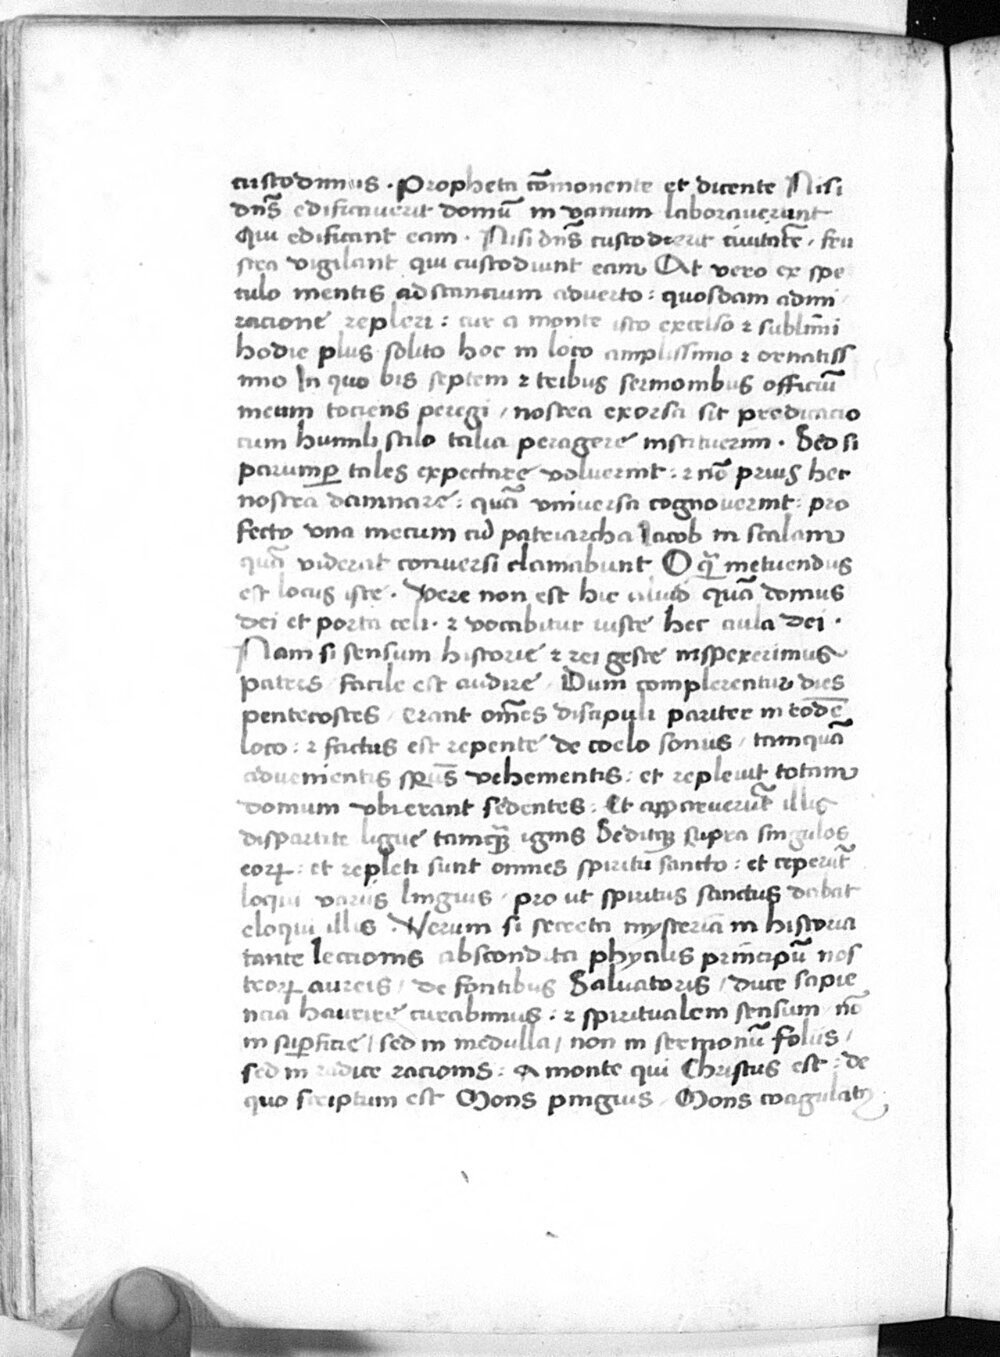 custodimus . Propheta cōmonente et dicente Nisi
dn̄s edificauerit domū in vanum laborauerunt
Qui edificant eam . Nisi dn̄s custodierit ciuitatē / fru
stra vigilant qui custodiunt eam At vero ex spe
culo mentis adstancium aduerto : quosdam admi
racione repleri : cur a monte isto excelso ⁊ sublimi
hodie plus solito hoc in loco amplissimo ⁊ ornatiss
imo In quo bis septem ⁊ tribus sermonibus officiū
meum tociens peregi / nostra exorsa sit predicacio
cum humili stilo talia peragere instituerim . Sed si
parump̱ tales expectare voluerint : ⁊ nō prius hec
nostra damnare : quā vniuersa cognouerint : pro
fecto vna mecum cū patriarcha Iacob in scalam
quā viderat conuersi clamabunt O q̄ metuendus
est locus iste . Vere non est hic aliud quā domus
dei et porta celi . ⁊ vocabitur iuste hec aula dei .
Nam si sensum historie ⁊ rei geste inspexerimus
patris / facile est audire / Dum complerentur dies
pentecostes / erant om̄es discipuli pariter in eodē
loco : ⁊ factus est repente de coelo sonus / tamquā
aduenientis spūs vehementis : et repleuit totam
domum vbi erant sedentes : Et apparuerūt illis
dispartite ligue tamq̄ ignis Seditq̧ supra singulos
eorꝝ : et repleti sunt omnes spiritu sancto : et ceperūt
loqui varijs linguis / pro ut spiritus sanctus dabat
eloqui illis . Verum si secreta mysteria in historia
tante leccionis abscondita phyalis principū nos
trorꝝ aureis / de fontibus Saluatoris / duce sapie
ncia haurire curabimus . ⁊ spiritualem sensum nō
in sup̱ficie / sed in medulla / non in sermonū foliis /
sed in radice racionis : A monte qui Christus est : de
quo scriptum est Mons pinguis / Mons coagulatꝰ